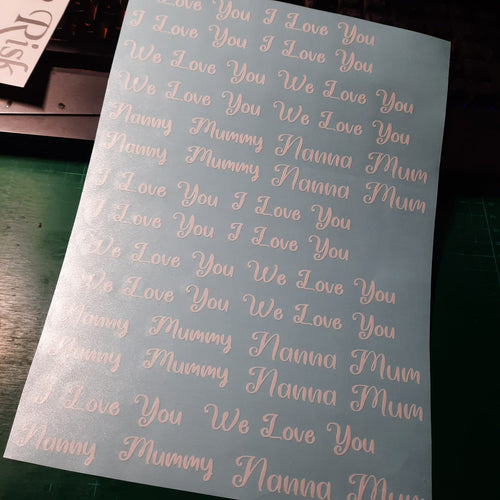 Risk
I Love You I Love You
I Love You I Love You
We Love You We Love You
We Love You We Love You
Nanny Mummy Nanna Mum
Nanny Mummy Nanna Mum
I Love You I Love You
I Love You I Love You
We Love You We Love You
We Love You We Love You
Nanny Mummy Nanna Mum
Nanny Mummy Nanna Mum
I Love You We Love You
Nanny Mummy Nanna Mum